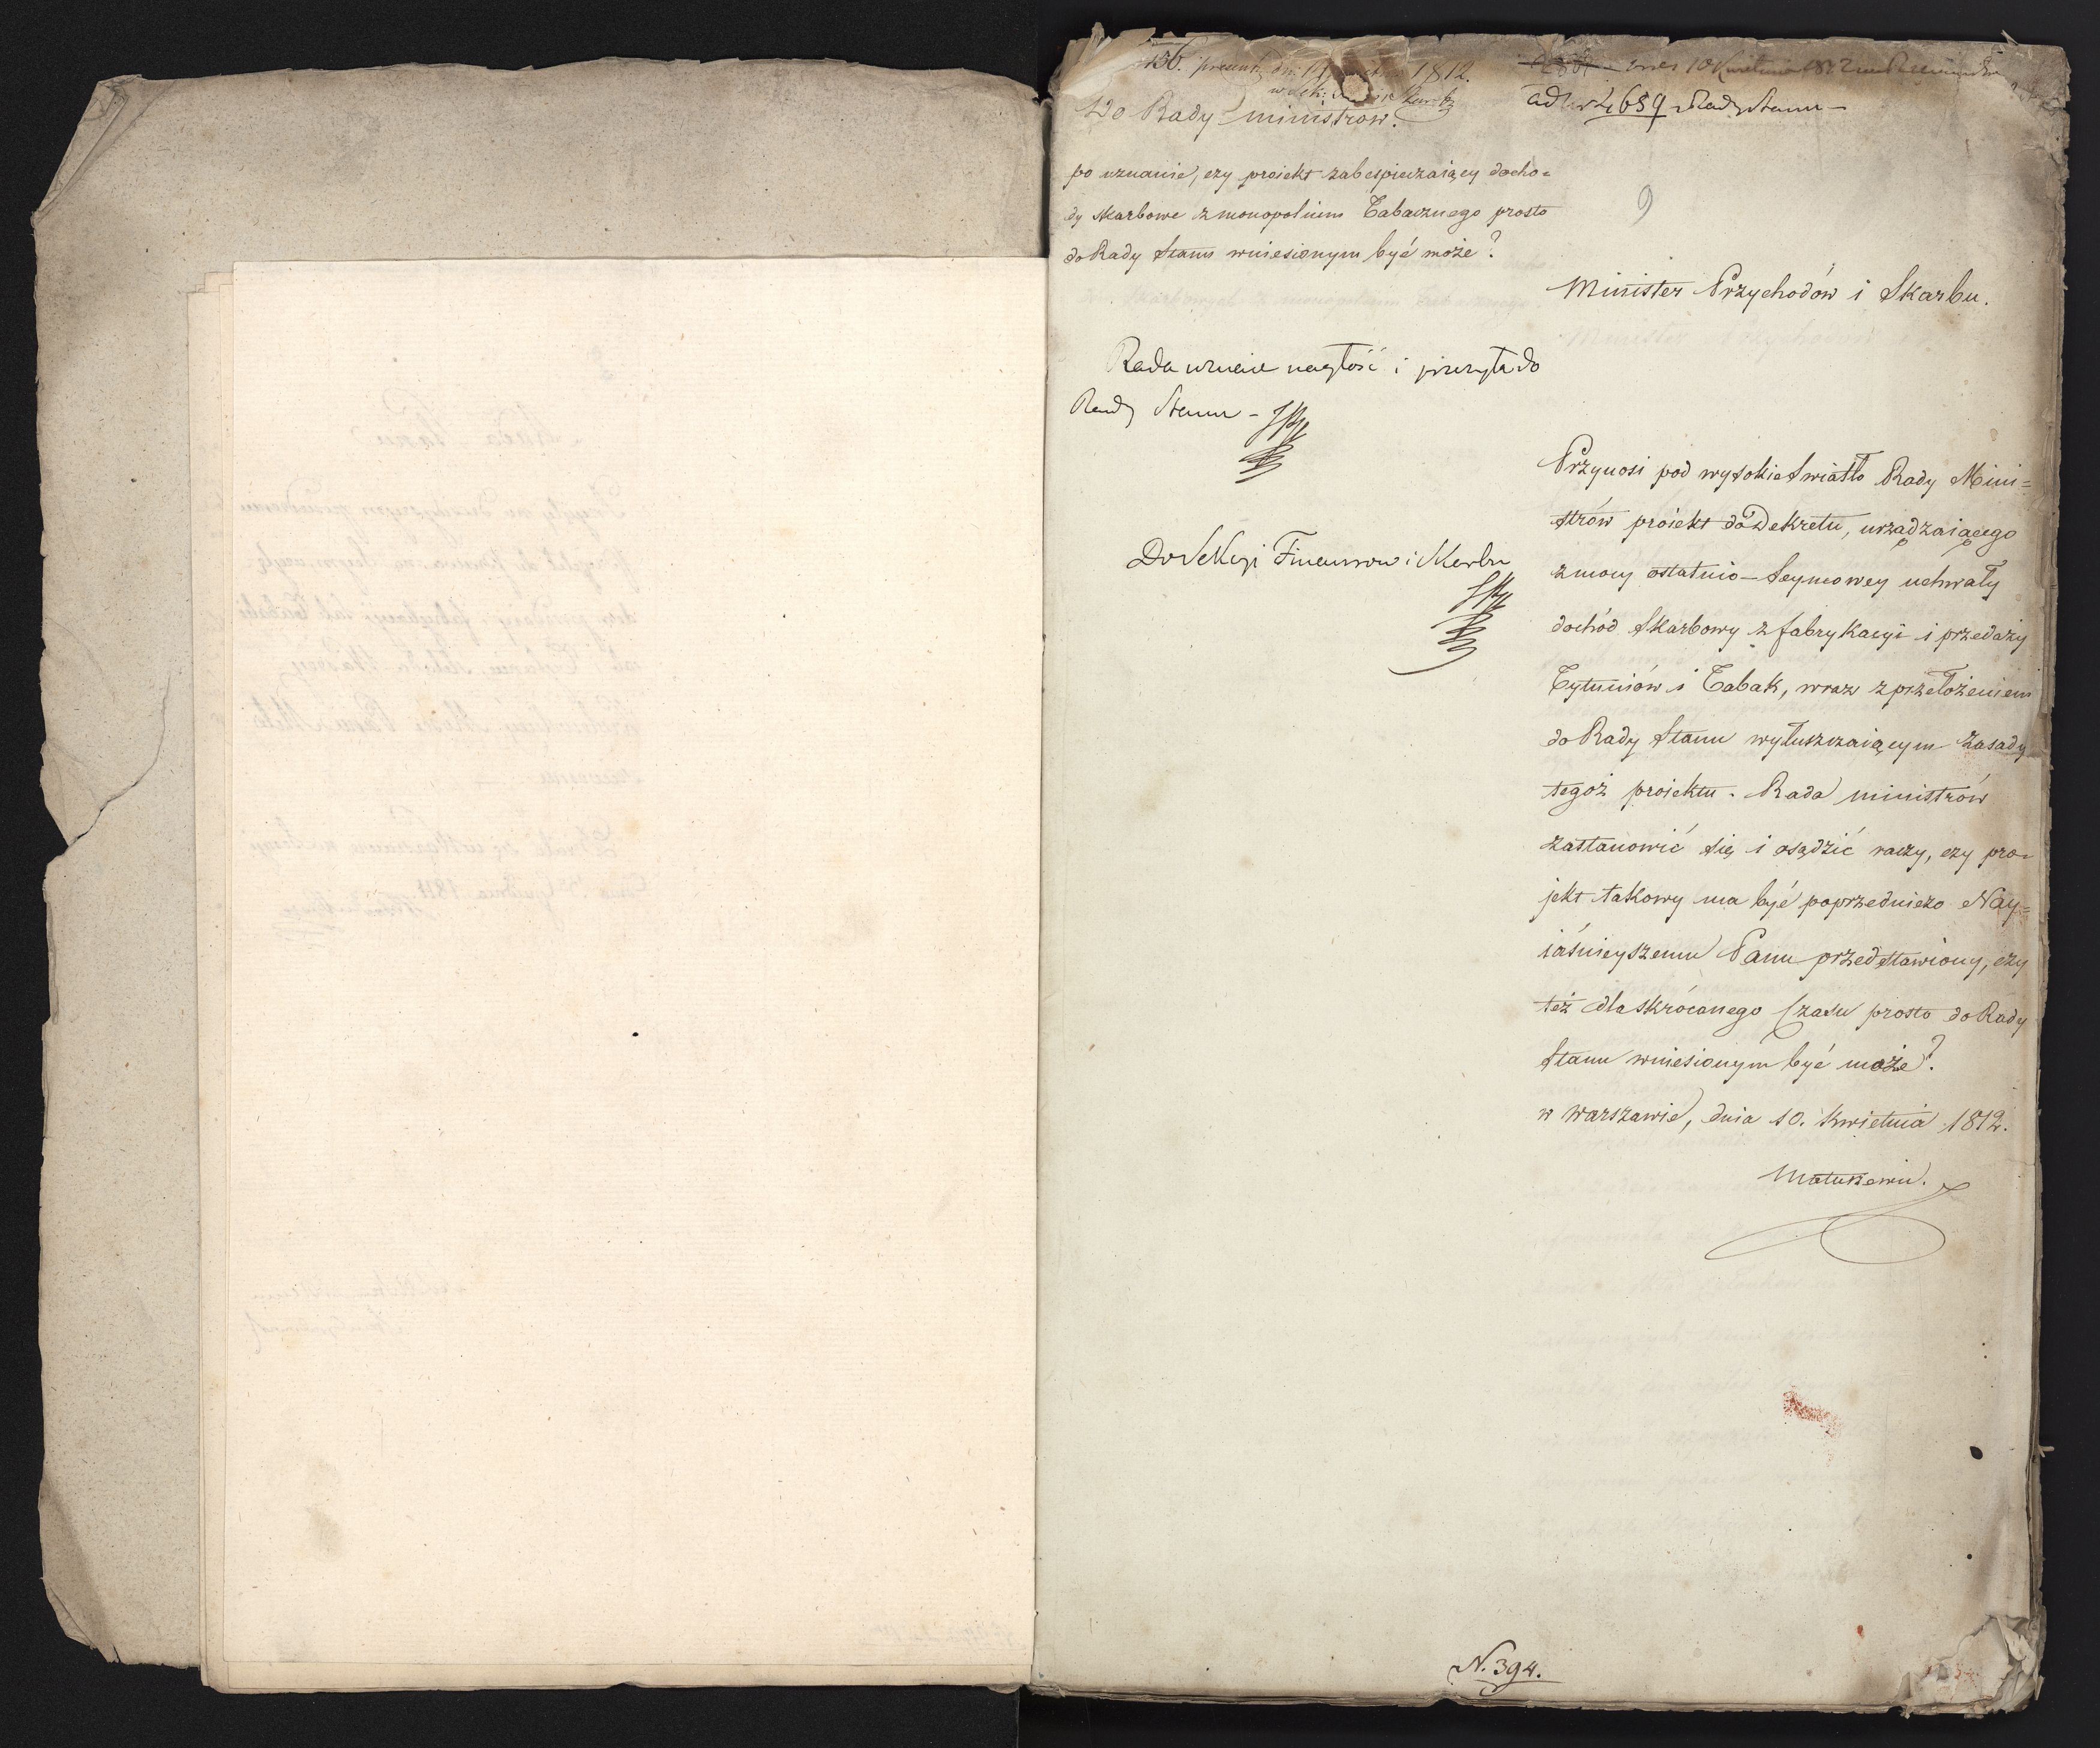 136. 1812.
Do Rady ministrow.
po uznanie, czy projekt zabespieczaiący docho=
dy skarbowe z monopolium Tabacznego prosto
do Rady Stanu wniesionym być może?
Rada uznaie nagłość i przesyła do
Rady Stanu -
Do Sekcyi Finansow i Skarbu
10 Kwietnia
ad Nr 2689 Rady Stanu
9
Minister Przychodów i Skarbu.
Przynosi pod wysokie światło Rady Mini=
strów proiekt do Dekretu, urządzaiącego
z mocy ostatnio-Seymowey uchwały
dochód Skarbowy z fabrykacyi i przedaży
Tytuniów i Tabak, wraz z przełożeniem
do Rady Stanu wyłuszczaiącym zasady
tegoż proiektu. Rada ministrów
zastanowić się i osądzić raczy, czy pro=
jekt takowy ma być poprzedniczo Nay=
iaśnieyszemu Panu przedstawiony, czy
też dla skróconego Czasu prosto do Rady
Stanu wniesionym być może?
w Warszawie, dnia 10. Kwietnia 1812.
Matuszewic.
N. 394.